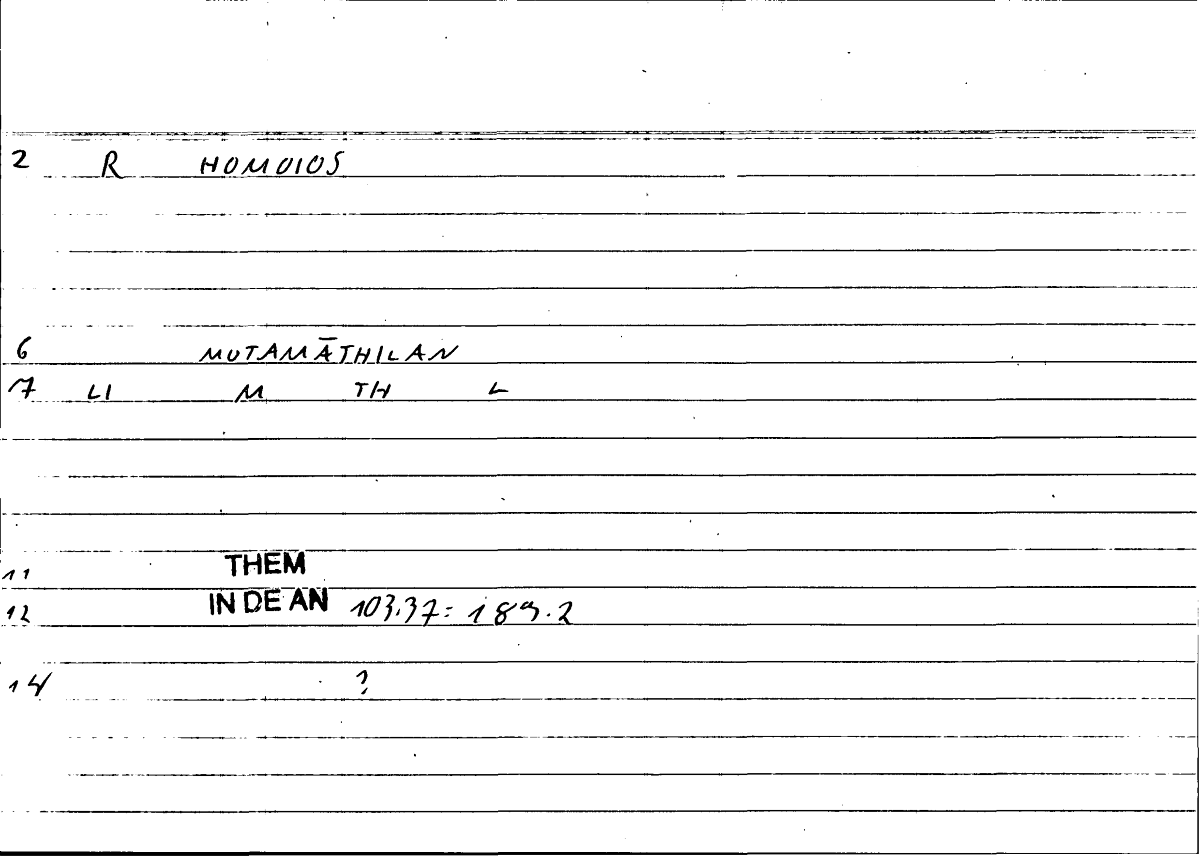 2 R HOMOIOS
6 MUTAMĀTHILAN
7 LI M TH L
11 THEM
12 IN DE AN 103.37 = 189.2
14 ?